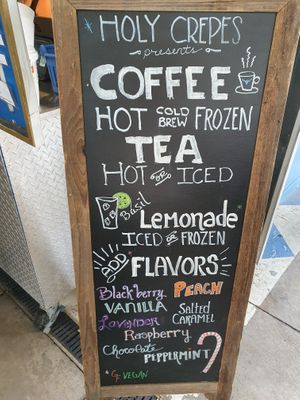 HOLY CREPES
presents
COFFEE
HOT COLD BREW FROZEN
TEA
HOT OR ICED
Basil Lemonade
ICED OR FROZEN
ADD FLAVORS
Blackberry PEACH
VANILLA Salted CARAMEL
Lavender
Raspberry
Chocolate PEPPERMINT
VEGAN